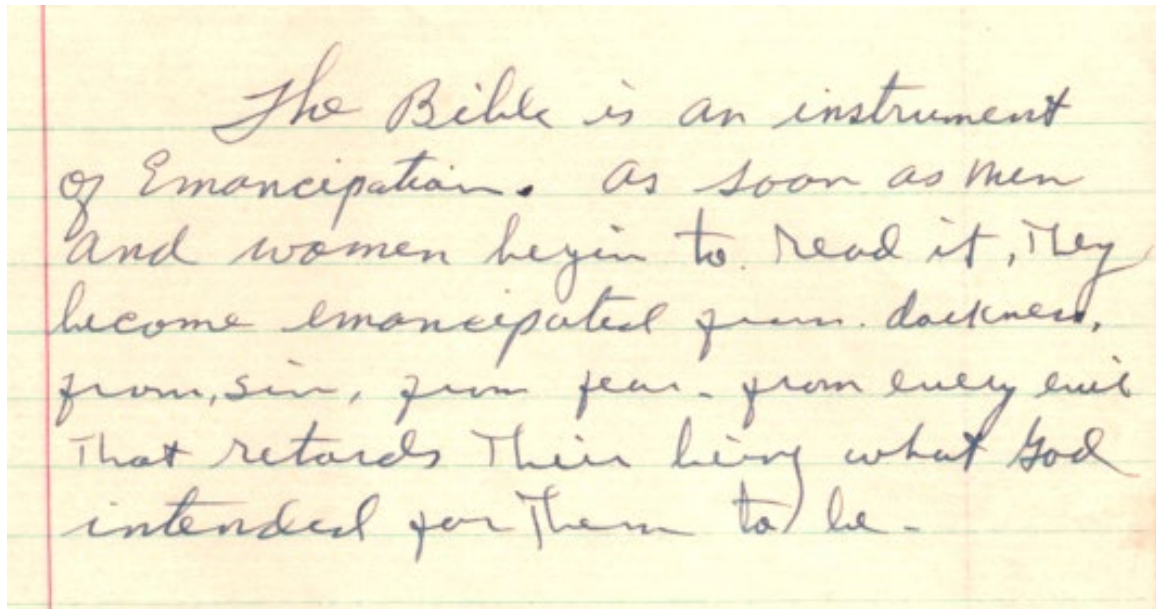 The Bible is an instrument
of Emancipation. As soon as men
and women begin to read it, They
become emancipated from darkness,
from, sin, from fear - from every evil
That retards Their being what God
intended for Them to be -